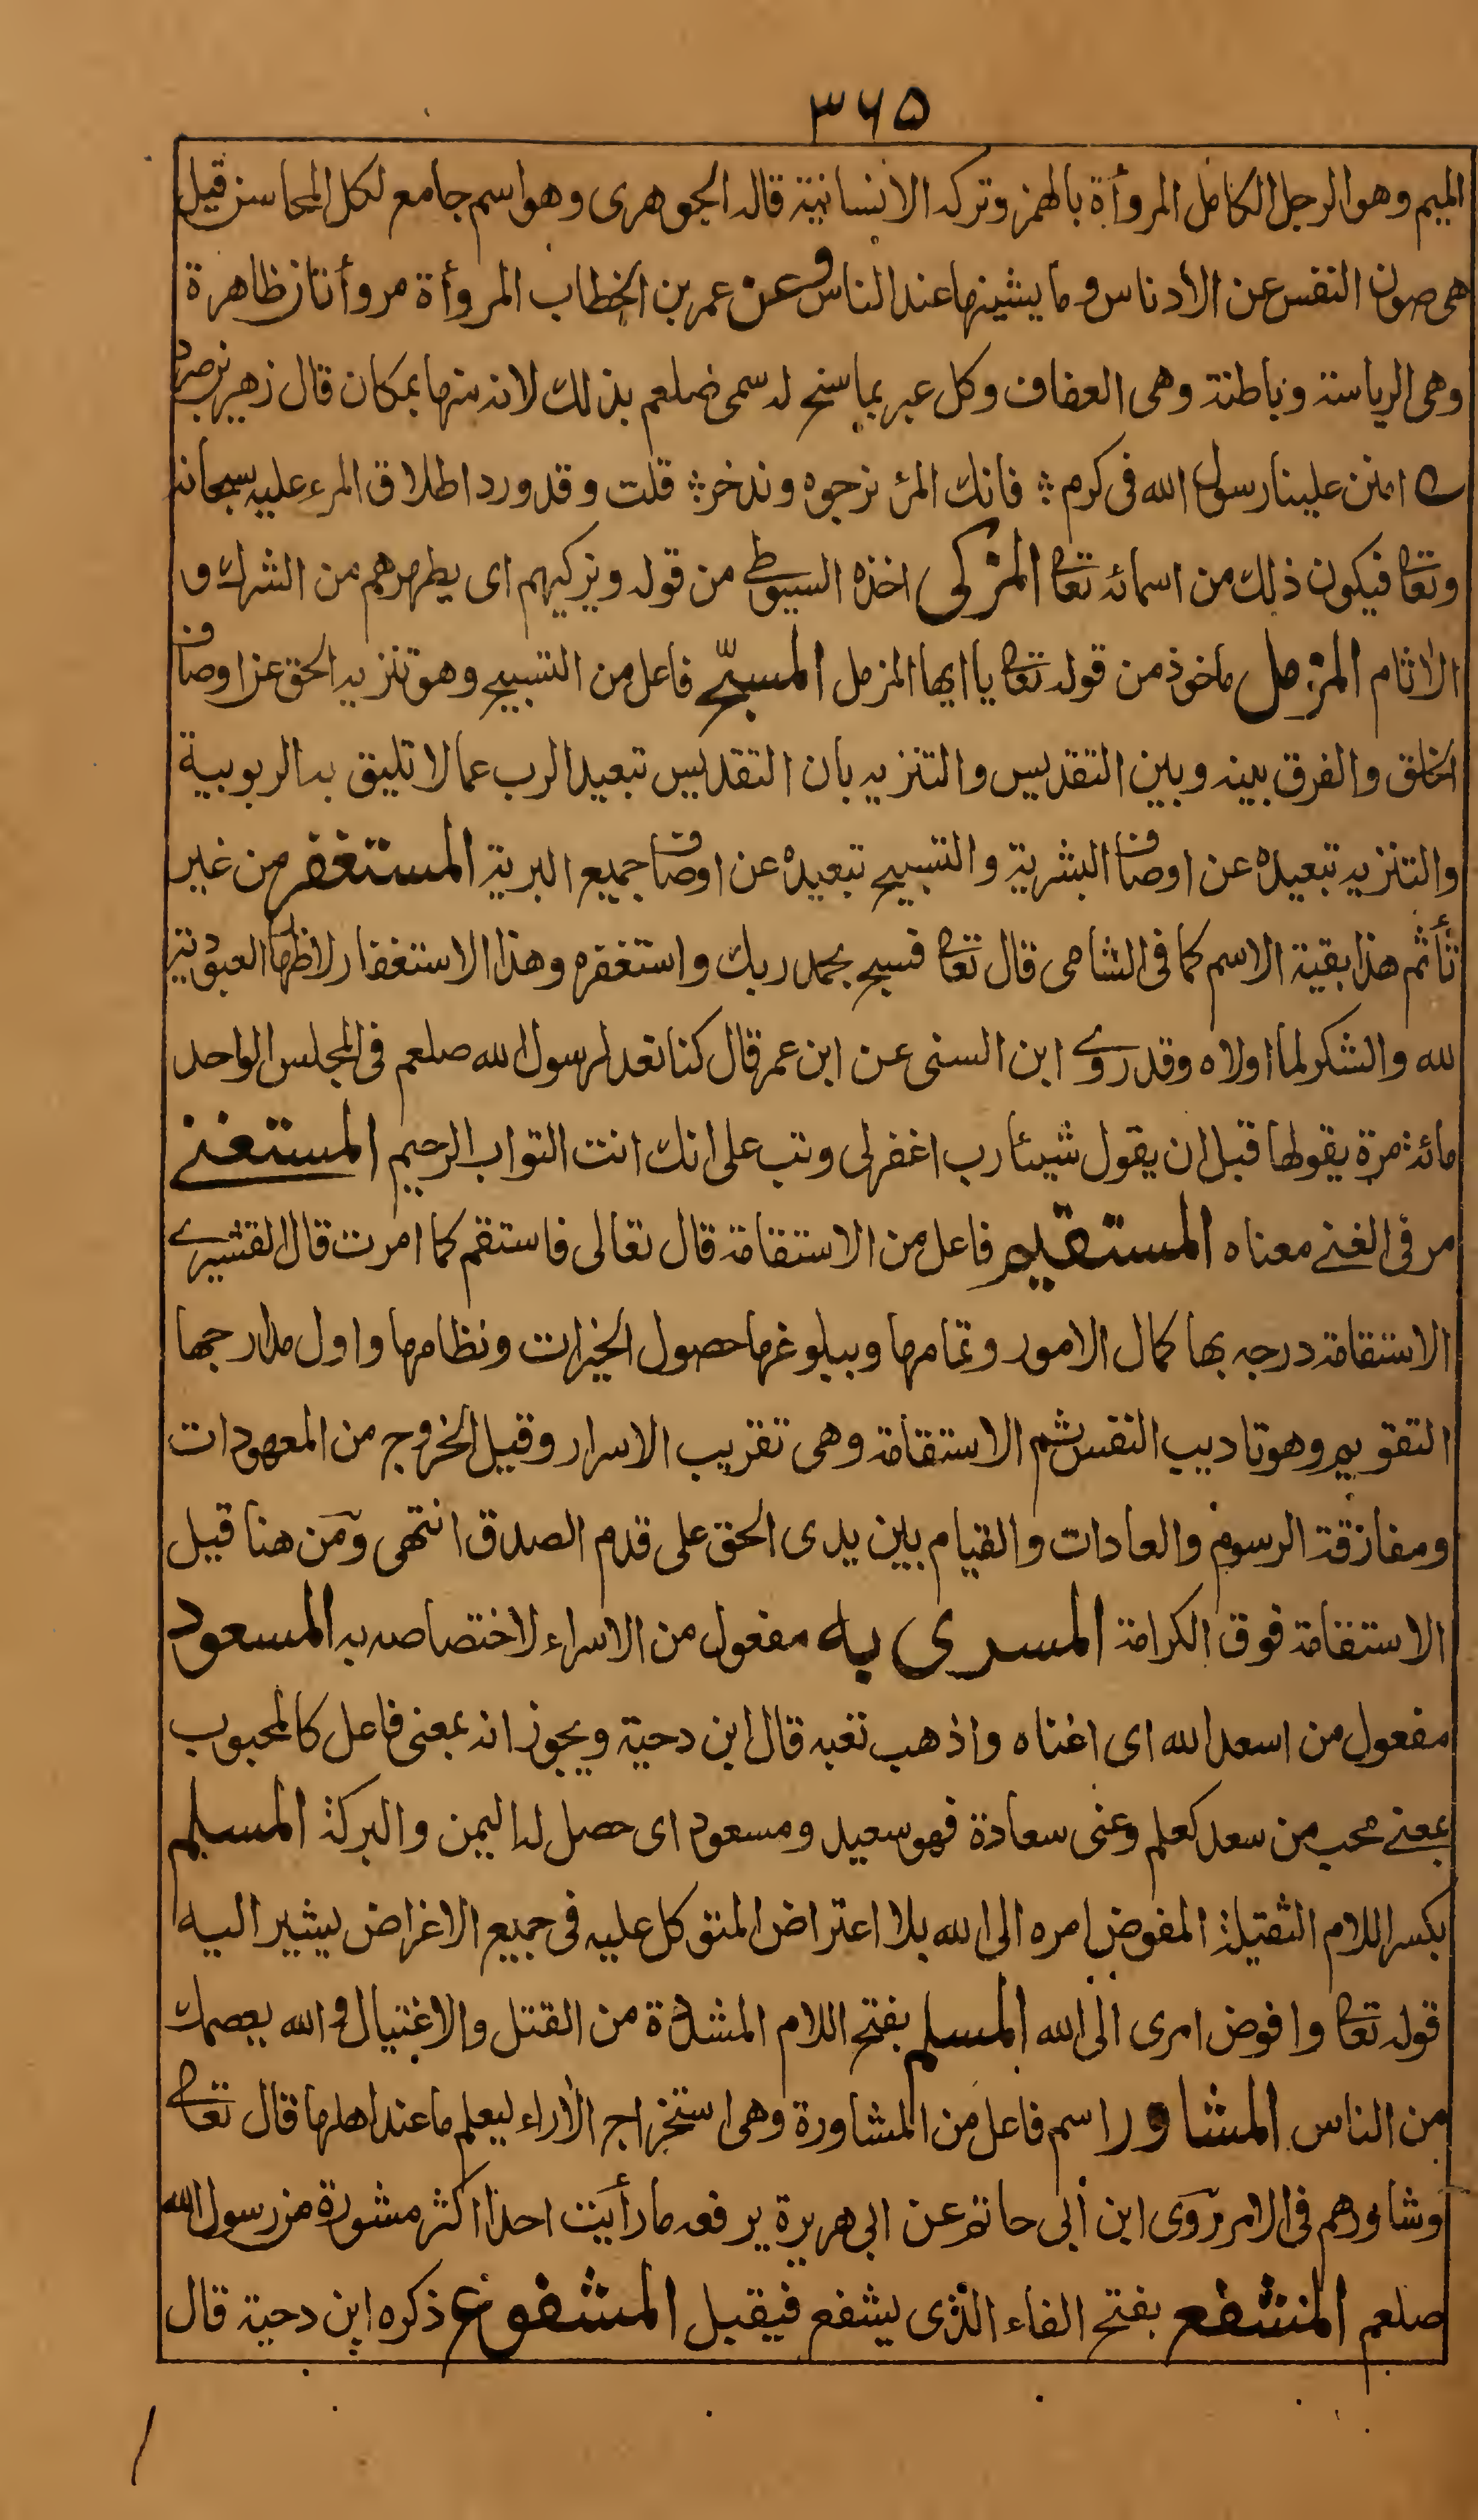 ٣٦٥
الميم وهو الرجل الكامل المروأة بالهمز وتركه الانسانية قاله الجوهرى وهو اسم جامع لكل المحاسن قيل
هى صون النفس عن الأدناس وما يشينها عند الناس وعن عمر بن الخطاب المروأة مروأتان ظاهرة
وهى الرياسة وباطنة وهى العفاف وكل عبر بما سنح له سمى صلعم بذلك لانه منها بمكان قال زهير بن صرد
امنن علينا رسول الله فى كرم ؛ فانك المرء نرجوه وندخر ؛ قلت وقد ورد اطلاق المرء عليه سبحانه
وتعا فيكون ذلك من اسمائه تعا المزكى اخذه السيوطى من قوله ويزكيهم اى يطهرهم من الشرك و
الاثام المزمل ماخوذ من قوله تعا يا ايها المزمل المسبّح فاعل من التسبيح وهو تنزيه الحق عن اوصاف
الخلق والفرق بينه وبين التقديس والتنزيه بان التقديس تبعيد الرب عما لا تليق به الربوبية
والتنزيه تبعيده عن اوصاف البشرية والتسبيح تبعيده عن اوصاف جميع البرية المستغفر من غير
تأثم هذا بقية الاسم كما فى الشامى قال تعا فسبح بحمد ربك واستغفره وهذا الاستغفار لاظهار العبودية
لله والشكر لما اولاه وقد روى ابن السنى عن ابن عمر قال كنا نعد لرسول الله صلعم فى المجلس الواحد
مائة مرة يقولها قبل ان يقول شيئا رب اغفر لى وتب على انك انت التواب الرحيم المستغنے
مر فى الغنے معناه المستقيم فاعل من الاستقامة قال تعالى فاستقم كما امرت قال القشيرے
الاستقامة درجه بها كمال الامور وتمامها وببلوغها حصول الخيرات ونظامها واول مدارجها
التقويم وهو تاديب النفس ثم الاستقامة وهى تقريب الاسرار وقيل الخروج من المعهودات
ومفارقة الرسوم والعادات والقيام بين يدى الحق على قدم الصدق انتهى ومن هنا قيل
الاستقامة فوق الكرامة المسرى به مفعول من الاسراء لاختصاصه به المسعود
مفعول من اسعد الله اى اغناه واذهب تعبه قال ابن دحية ويجوز انه بمعنى فاعل كالمحبوب
بمعنے محب من سعد كعلم وعنى سعادة فهو سعيد ومسعود اى حصل له اليمن والبركة المسلم
بكسر اللام الثقيلة المفوض امره الى الله بلا اعتراض المتوكل عليه فى جميع الاغراض يشير اليه
قوله تعا وافوض امرى الى الله المسلم بفتح اللام المشددة من القتل والاغتيال والله يعصمك
من الناس المشاور اسم فاعل من المشاورة وهى استخراج الأراء ليعلم ما عند اهلها قال تعا
وشاورهم فى الامر روى ابن أبى حاتم عن ابى هريرة يرفعه ما رأيت احدا اكثر مشورة من رسول الله
صلعم المشفع بفتح الفاء الذى يشفع فيقبل المشفوع ذكره ابن دحية قال